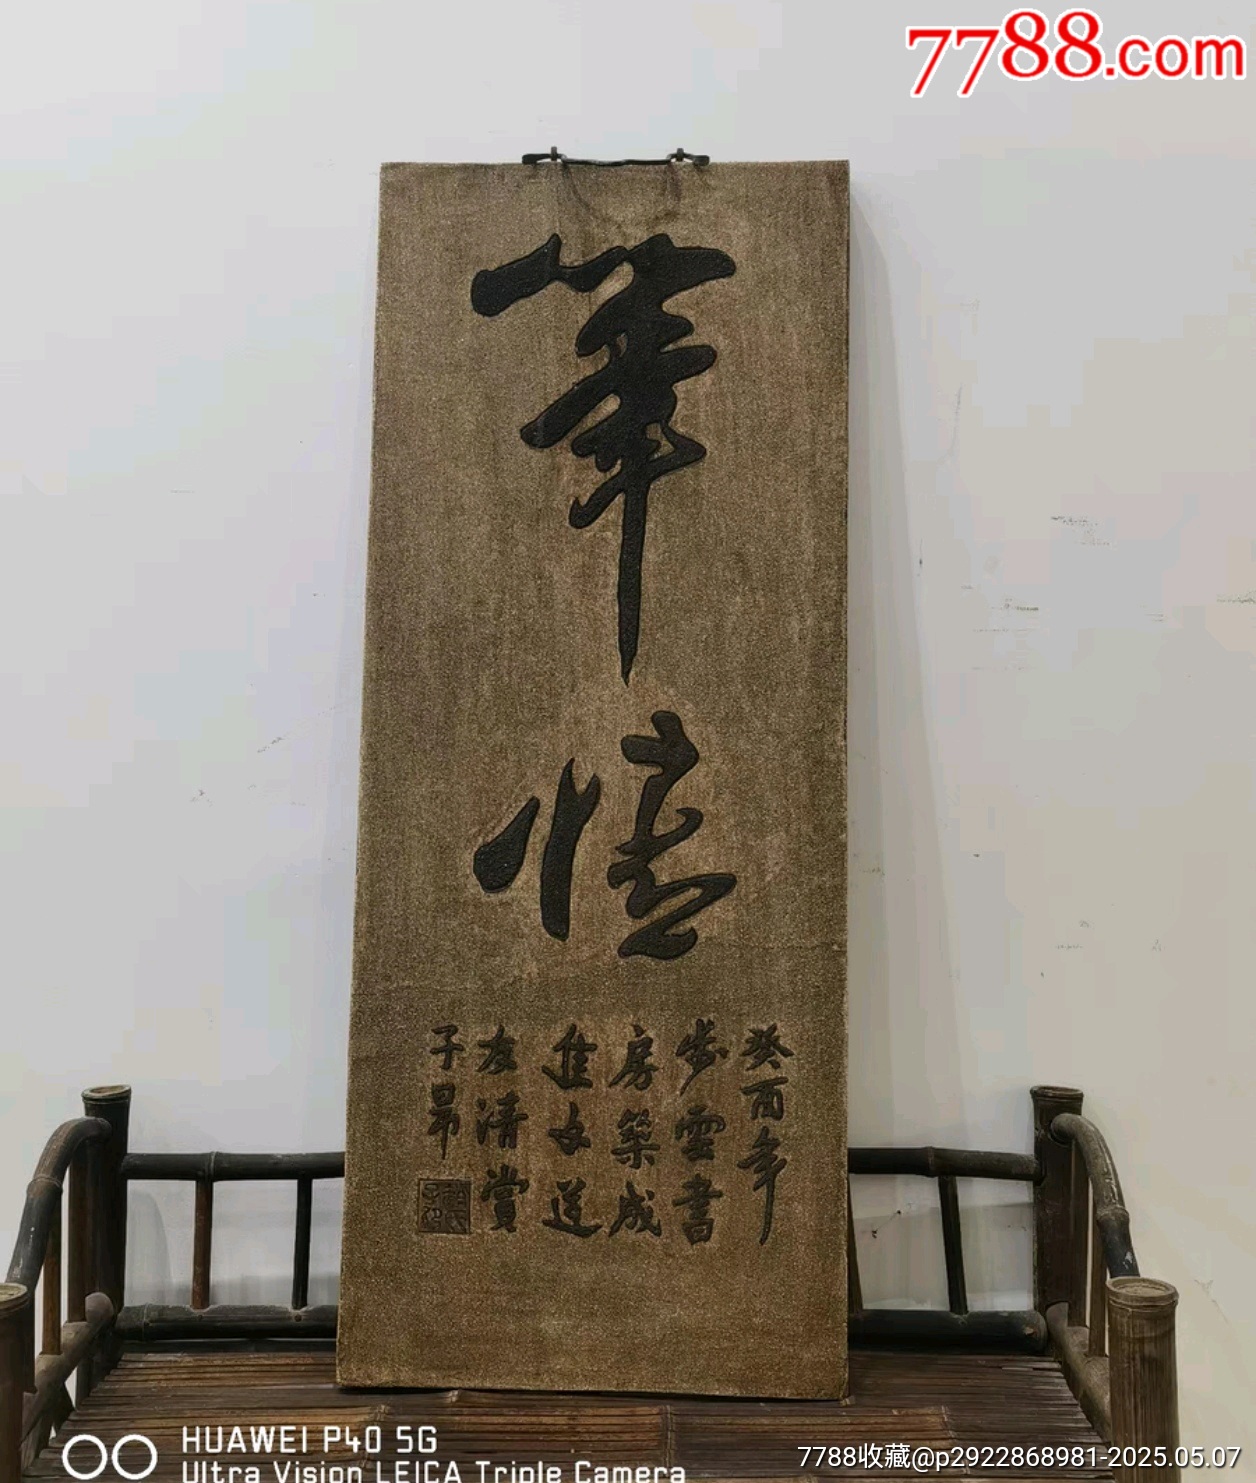 7788.com
筆情
癸酉年
步雲書
房築成
進文
友清賞
子昂
HUAWEI P40 5G
Ultra Vision LEICA Triple Camera
7788收藏@p2922868981-2025.05.07